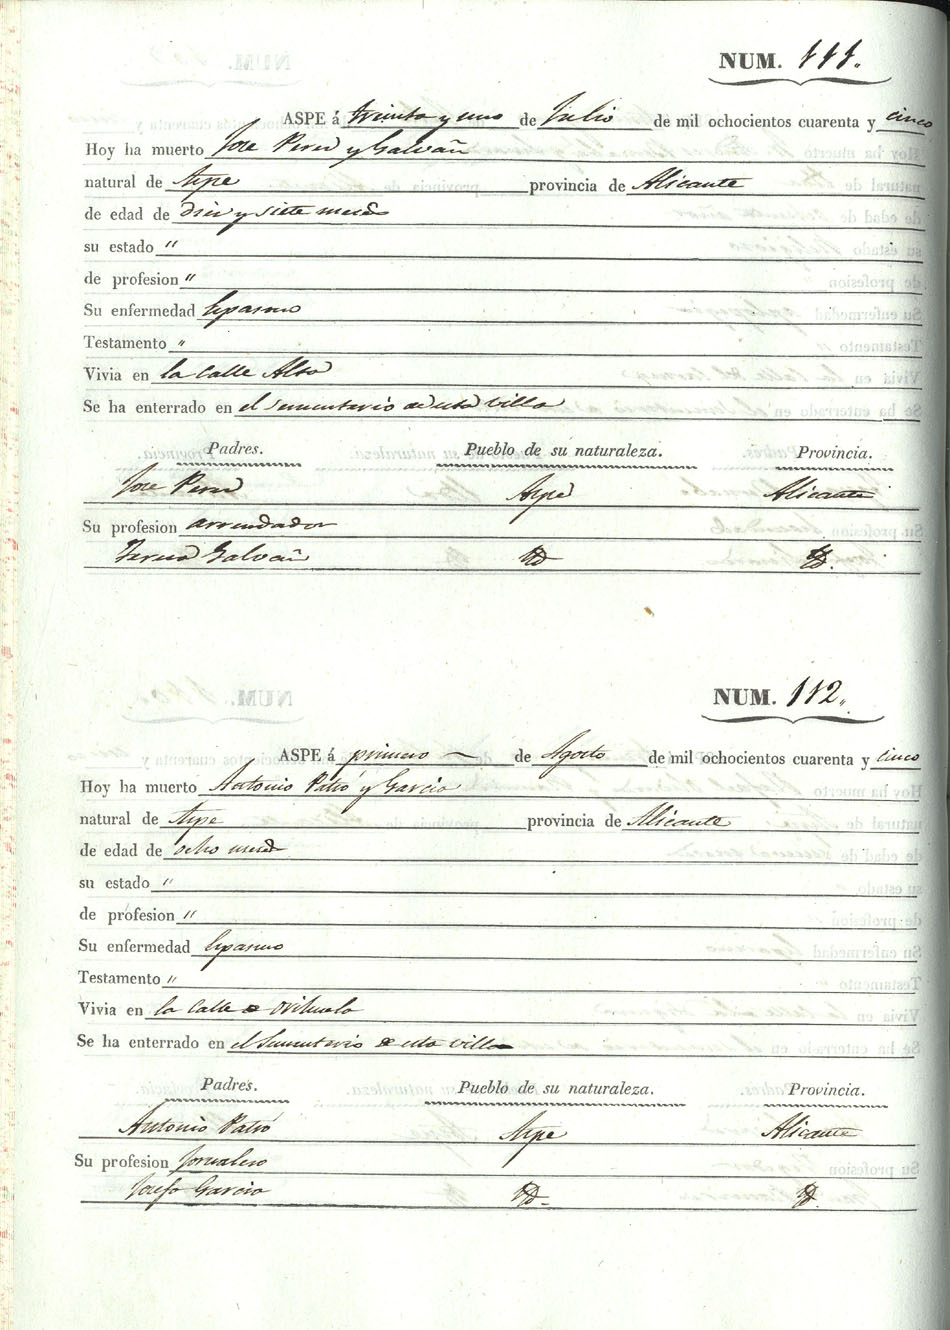 NUM. 111.
ASPE á treinta y uno de Julio de mil ochocientos cuarenta y cinco
Hoy ha muerto Jose Perez y Galvañ
natural de Aspe provincia de Alicante
de edad de diez y siete meses
su estado "
de profesion "
Su enfermedad Espasmo
Testamento "
Vivia en la Calle Alta
Se ha enterrado en el Sementerio de esta villa
Padres. Pueblo de su naturaleza. Provincia.
Jose Perez Aspe Alicante
Su profesion arrendador
Teresa Galvañ Yd Yd.
NUM. 112.
ASPE á primero de Agosto de mil ochocientos cuarenta y cinco
Hoy ha muerto Antonio Patró y Garcia
natural de Aspe provincia de Alicante
de edad de ocho meses
su estado "
de profesion "
Su enfermedad Espasmo
Testamento "
Vivia en la Calle de Orihuela
Se ha enterrado en el Sementerio de esta villa
Padres. Pueblo de su naturaleza. Provincia.
Antonio Patró Aspe Alicante
Su profesion Jornalero
Josefa Garcia Yd. Yd.